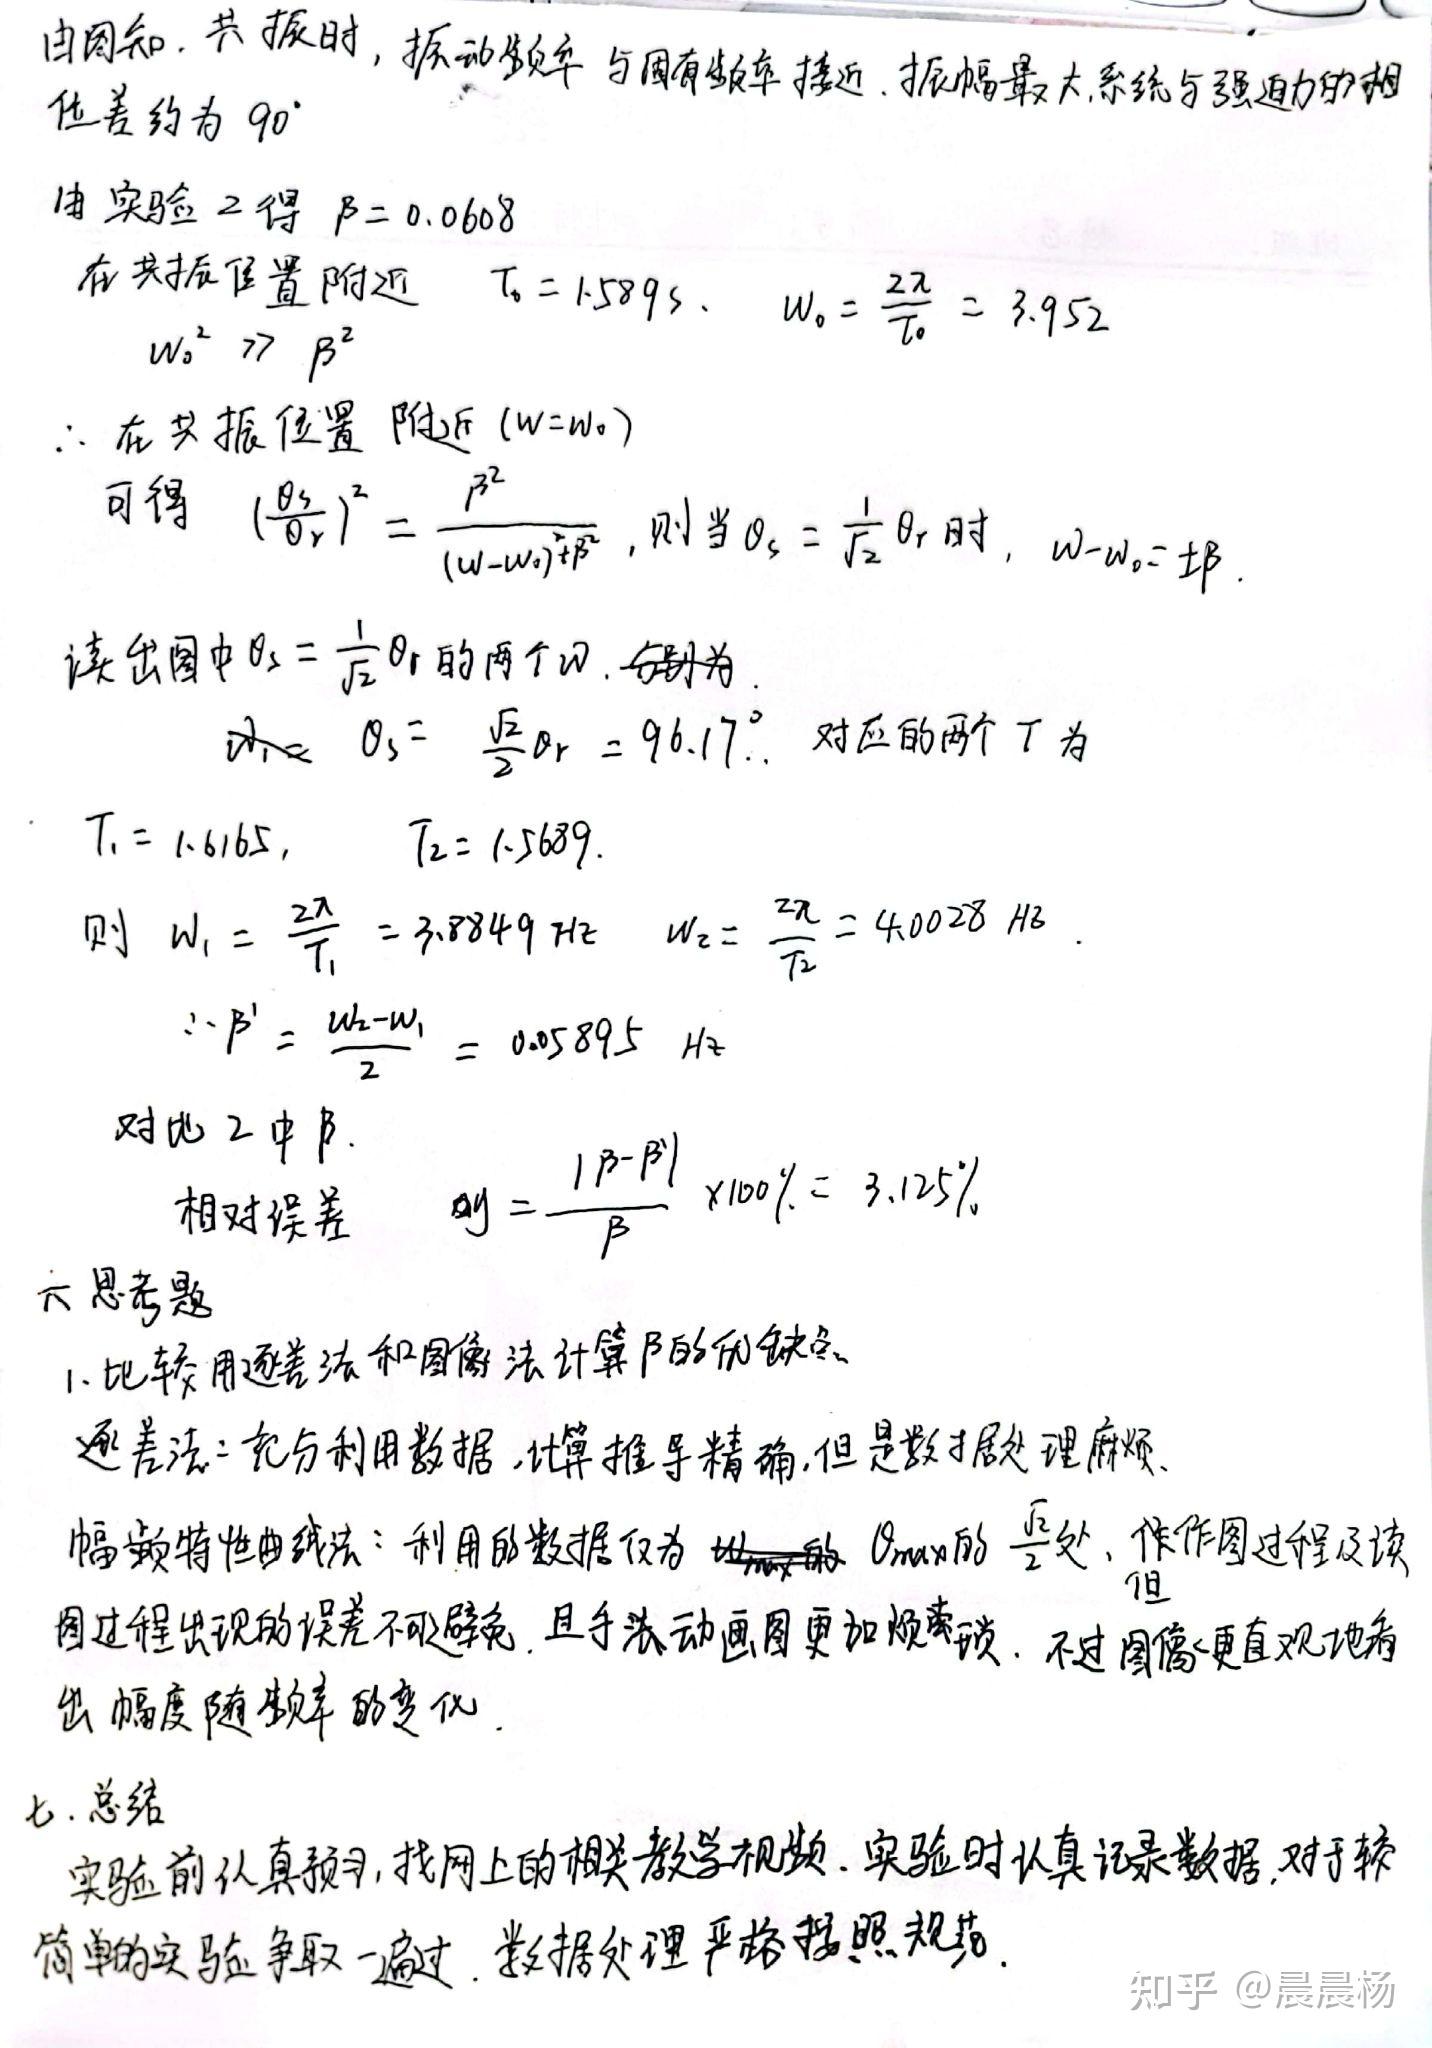 由图知.共振时,振动频率与固有频率接近.振幅最大,系统与强迫力的相
位差约为90°
由实验2得 β=0.0608
在共振位置附近 T₀=1.589s. W₀=2π/T₀=3.952
W₀² >> β²
∴在共振位置附近(W=W₀)
可得 (θs/θr)²=β²/((W-W₀)²+β²),则当θs=1/√2 θr时, W-W₀=±β.
读出图中θs=1/√2 θr的两个W.分别为.
θs=√2/2 θr=96.17°. 对应的两个T为
T₁=1.6165, T₂=1.5689.
则 W₁=2π/T₁=3.8849Hz W₂=2π/T₂=4.0028Hz.
∴β'=(W₂-W₁)/2=0.05895 Hz
对比2中β.
相对误差 =|β-β'|/β×100%=3.125%
六思考题
1.比较用逐差法和图像法计算β的优缺点
逐差法:充分利用数据,计算推导精确,但是数据处理麻烦.
幅频特性曲线法:利用的数据仅为 θmax的√2/2处、但作图过程及读
图过程出现的误差不可避免.且手动画图更加烦琐.不过图像更直观地看
出幅度随频率的变化.
七.总结
实验前认真预习,找网上的相关教学视频.实验时认真记录数据,对于较
简单的实验争取一遍过.数据处理严格按照规范.
知乎 @晨晨杨